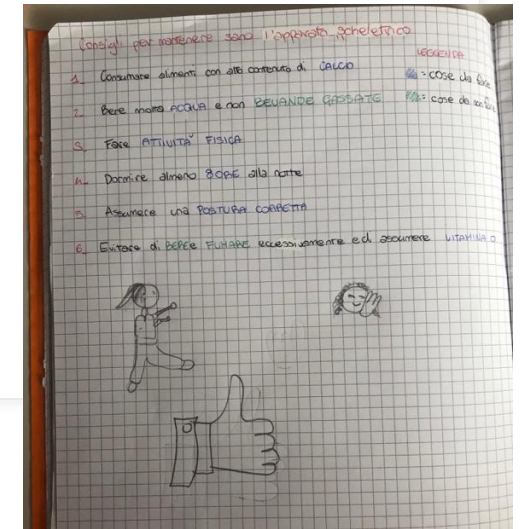 Consigli per mantenere sano l'apparato scheletrico
LEGGENDA
= cose da fare
= cose da non fare
1. Consumare alimenti con alto contenuto di CALCIO
2. Bere molta ACQUA e non BEVANDE GASSATE
3. Fare ATTIVITA' FISICA
4. Dormire almeno 8 ORE alla notte
5. Assumere una POSTURA CORRETTA
6. Evitare di BERE e FUMARE eccessivamente ed assumere VITAMINA D